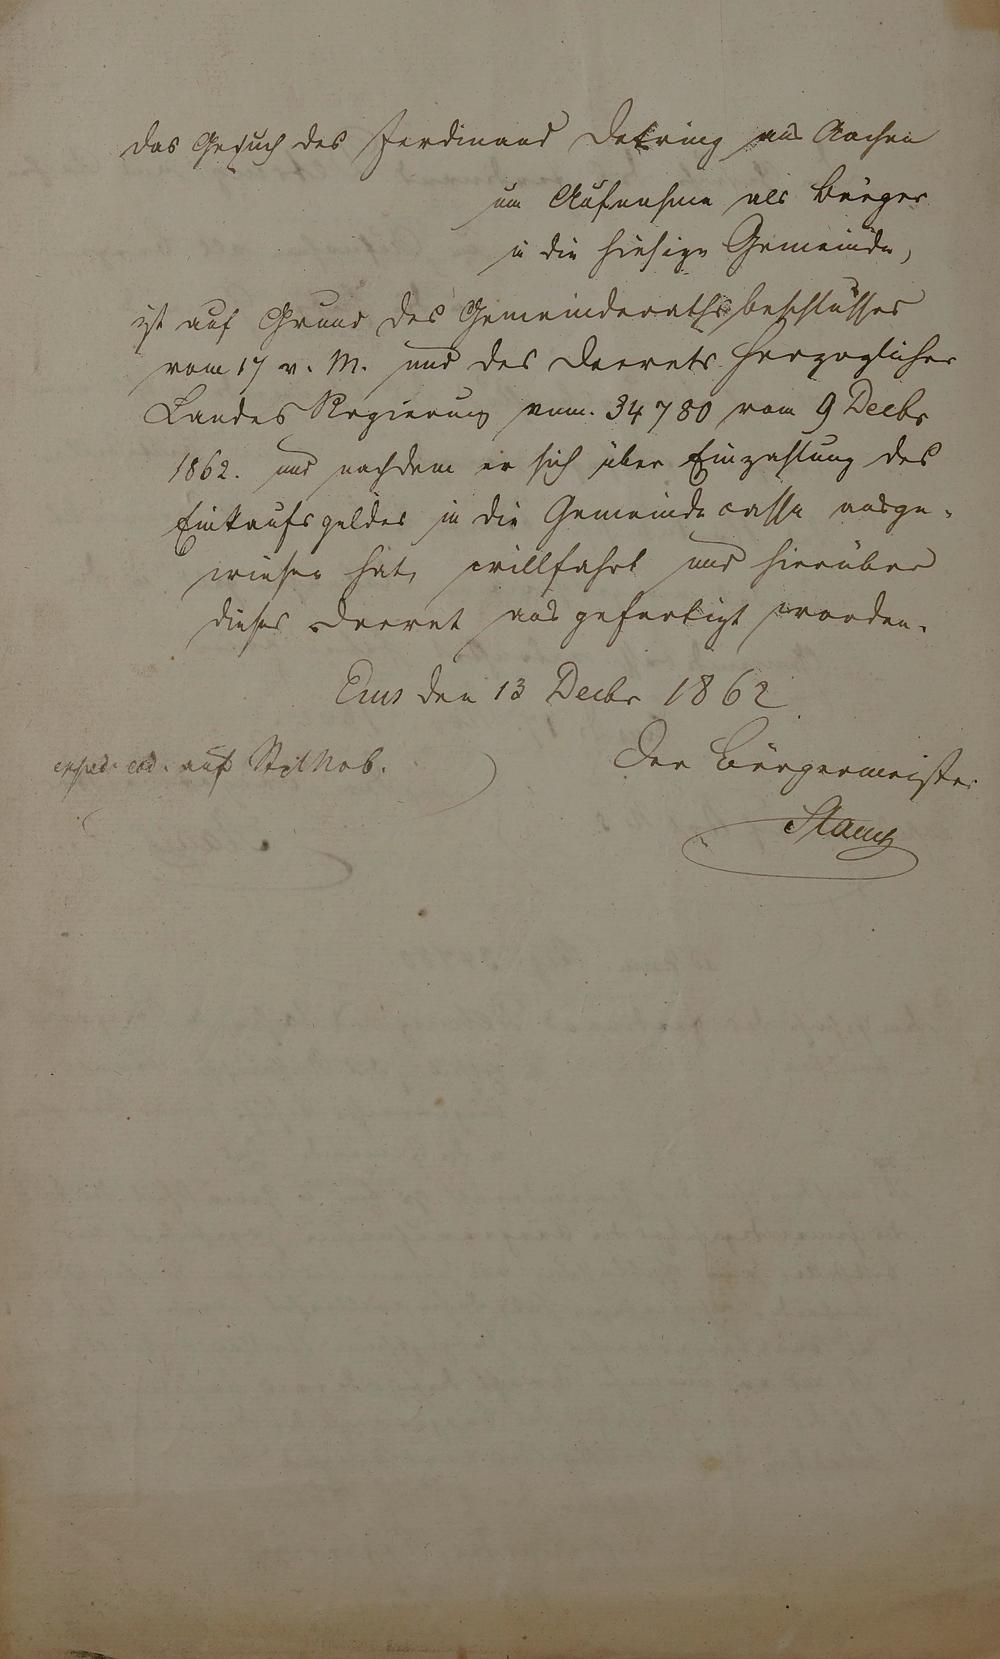 Das Gesuch des Ferdinand Detring aus Aachen
um Aufnahme als Bürger
in die hiesige Gemeinde,
ist auf Grund des Gemeinderathsbeschlusses
vom 17 v. M. und des Decrets Herzoglicher
Landes Regierung num. 34780 vom 9 Decbr
1862. und nachdem er sich über Einzahlung des
Einkaufsgeldes in die Gemeindecasse ausge-
wiesen hat, willfahrt und hierüber
dieses Decret ausgefertigt worden.
Ems den 13 Decbr 1862
exped. eod. auf
Der Bürgermeister